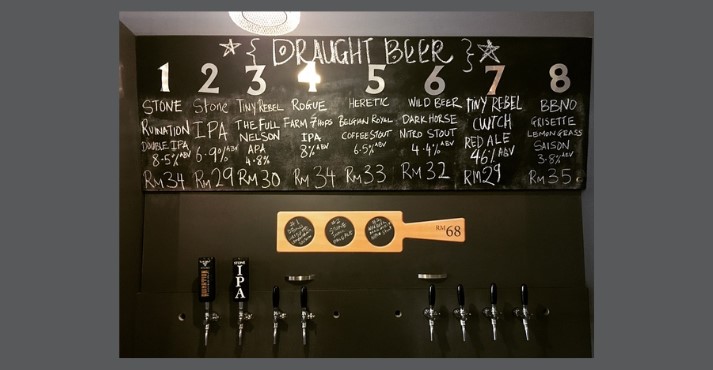 { DRAUGHT BEER }
1
STONE
RUINATION
DOUBLE IPA
8.5% ABV
RM34
2
Stone
IPA
6.9% ABV
RM29
3
TINY REBEL
THE FULL
NELSON
APA
4.8%
RM30
4
ROGUE
FARM 7 HOPS
IPA
8% ABV
RM34
5
HERETIC
BELGIAN ROYAL
COFFEE STOUT
6.5% ABV
RM33
6
WILD BEER
DARK HORSE
NITRO STOUT
4.4% ABV
RM32
7
TINY REBEL
CWTCH
RED ALE
4.6% ABV
RM29
8
BBNO
GRISETTE
LEMONGRASS
SAISON
3.8% ABV
RM35
RM68
STONE
IPA